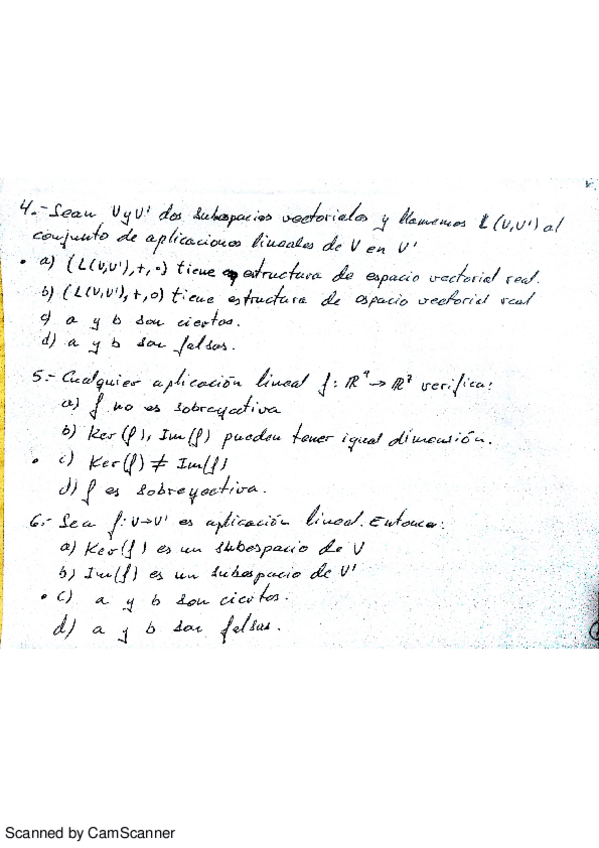 4.- Sean V y V' dos subespacios vectoriales y llamemos L(V,V') al
conjunto de aplicaciones lineales de V en V'
• a) (L(V,V'),+,·) tiene estructura de espacio vectorial real.
b) (L(V,V'),+,o) tiene estructura de espacio vectorial real
c) a y b son ciertos.
d) a y b son falsas.
5.- Cualquier aplicación lineal f: ℝ → ℝ verifica:
a) f no es sobreyectiva
b) Ker(f), Im(f) pueden tener igual dimensión.
• c) Ker(f) ≠ Im(f)
d) f es sobreyectiva.
6.- Sea f: V→V' es aplicación lineal. Entonces:
a) Ker(f) es un subespacio de V
b) Im(f) es un subespacio de V'
• c) a y b son ciertos.
d) a y b son falsas.
Scanned by CamScanner